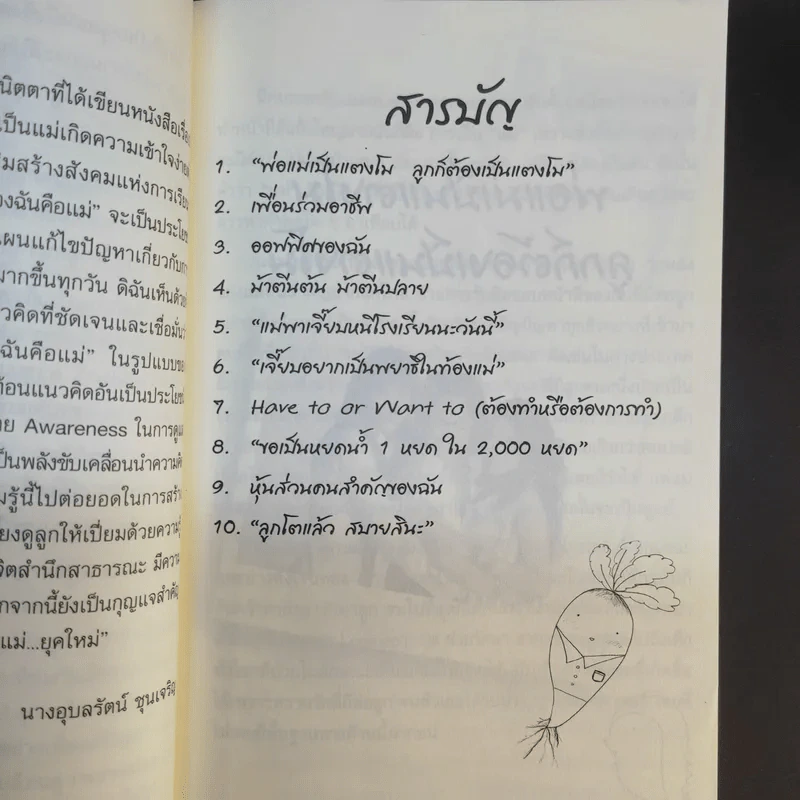 นิตตาที่ได้เขียนหนังสือเรื่อง
เป็นแม่เกิดความเข้าใจง่าย
สร้างสังคมแห่งการเรีย
องฉันคือแม่” จะเป็นประโย
แผนแก้ไขปัญหาเกี่ยวกับ
มากขึ้นทุกวัน ดิฉันเห็นด้วย
วคิดที่ชัดเจนและเชื่อมั่น
ฉันคือแม่” ในรูปแบบของ
ท้อนแนวคิดอันเป็นประโยช
ย Awareness ในการดูแ
เป็นพลังขับเคลื่อนนำความคิ
มรู้นี้ไปต่อยอดในการสร้า
ยงดูลูกให้เปี่ยมด้วยความรู้
จิตสำนึกสาธารณะ มีความ
กจากนี้ยังเป็นกุญแจสำคัญ
แม่...ยุคใหม่”
นางอุบลรัตน์ ชุนเจริญ
สารบัญ
1. “พ่อแม่เป็นแตงโม ลูกก็ต้องเป็นแตงโม”
2. เพื่อนร่วมอาชีพ
3. ออฟฟิศของฉัน
4. ม้าตีนต้น ม้าตีนปลาย
5. “แม่พาเจี๊ยบหนีโรงเรียนนะวันนี้”
6. “เจี๊ยบอยากเป็นพยาธิในท้องแม่”
7. Have to or Want to (ต้องทำหรือต้องการทำ)
8. “ขอเป็นหยดน้ำ 1 หยด ใน 2,000 หยด”
9. หุ้นส่วนคนสำคัญของฉัน
10. “ลูกโตแล้ว สบายสินะ”